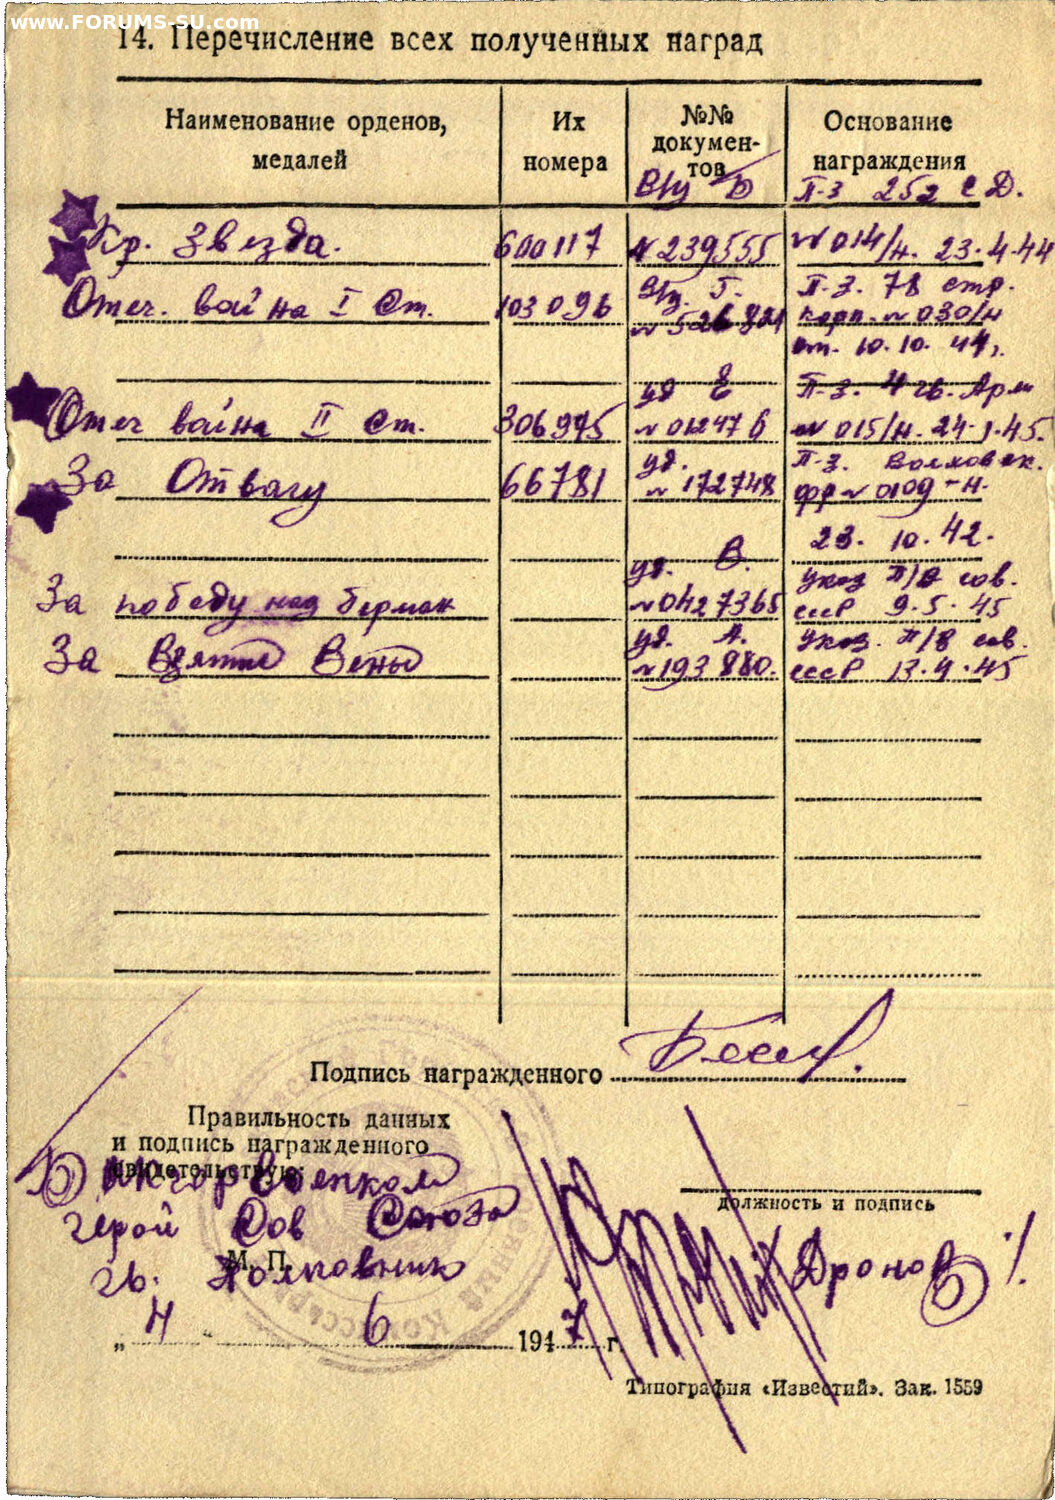 www.FORUMS-SU.com
14. Перечисление всех полученных наград
Наименование орденов, медалей
Их номера
№№ документов
Основание награждения
Вру Б П-з 252 С Д.
Кр. Звезда. 600117 № 239555 № 014/н. 23.4.44
Вр. Г. П.з. 78 стр.
Отеч. война I Ст. 103096 корп. № 030/н
от. 10.10.44г.
уд Е П-з. 4 гв. Арм
Отеч война II Ст. 306975 № 012476 № 015/н. 24.1.45.
уд. П-з. Волховск.
За Отвагу 66781 № 172748 фр № 0109-н.
23. 10. 42.
уд. В. Указ П/В сов.
За победу над Герман № 0427365 ссср 9.5.45
уд. А. Указ. П/В сов.
За Взятие Вены № 193880. ссср 13.4.45
Подпись награжденного
Правильность данных
и подпись награжденного
свидетельствую:
должность и подпись
Герой Сов Союза
М. П.
гв. Полковник
Дронов
„ 4 “ 6 1947 г.
Типография «Известий». Зак. 1559